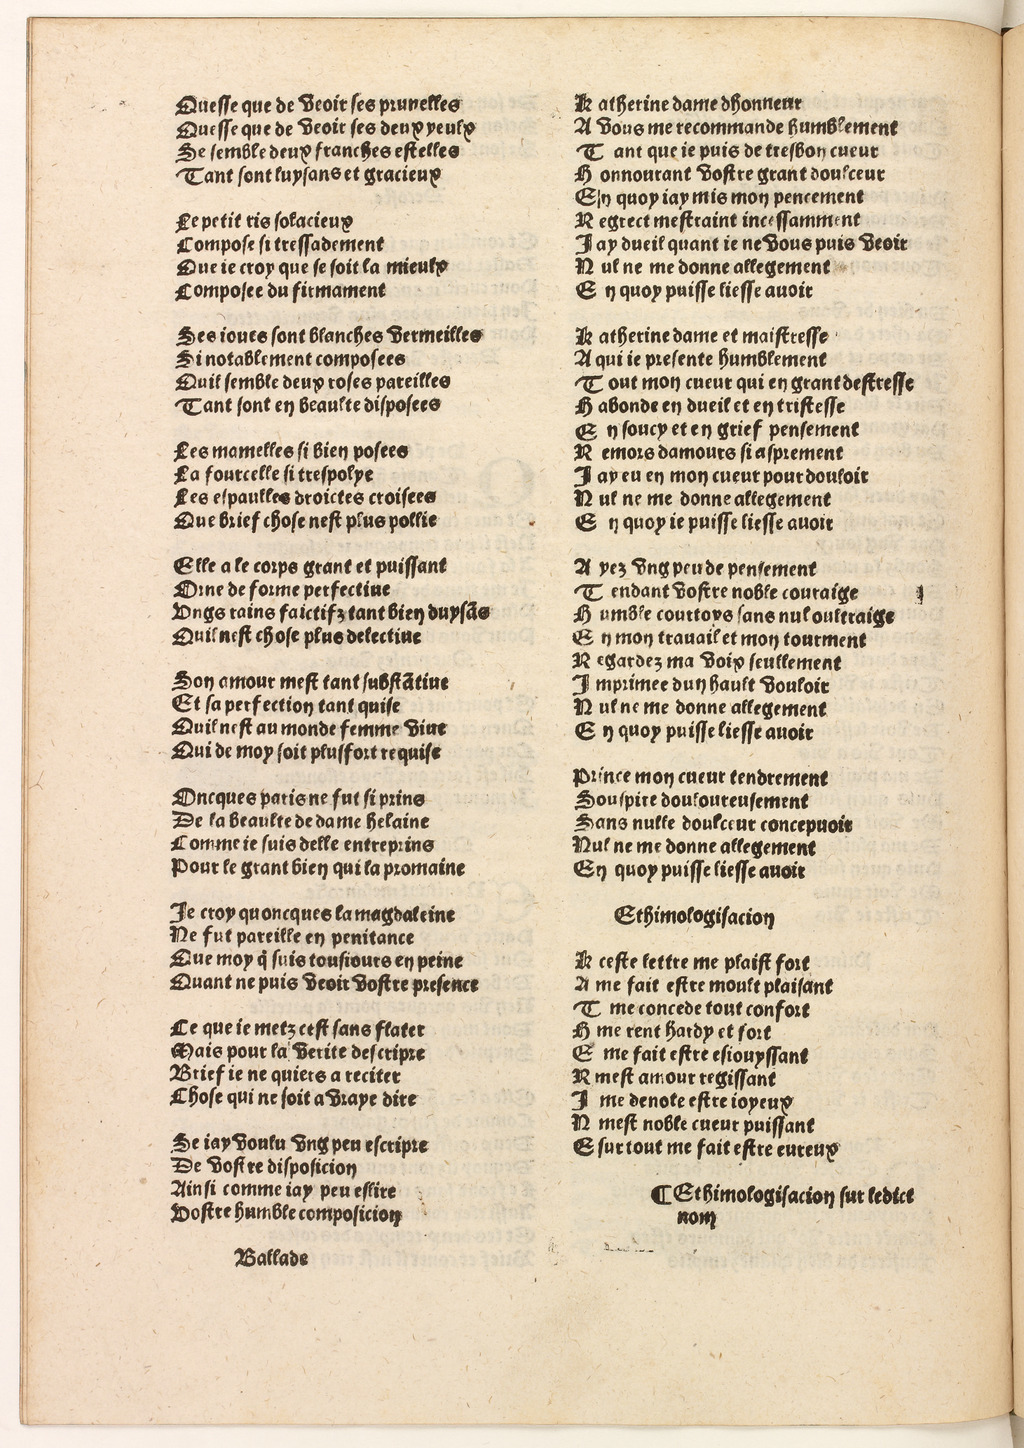 Quesse que de veoir ses prunelles
Quesse que de veoir ses deux yeulx
Se semble deux franches estelles
Tant sont luysans et gracieux
Le petit ris solacieux
Compose si tressadement
Que ie croy que se soit la mieulx
Composee du firmament
Ses ioues sont blanches vermeilles
Si notablement composees
Quil semble deux roses pareilles
Tant sont en beaulte disposees
Les mamelles si bien posees
La fourcelle si trespolye
Les espaulles droictes croisees
Que brief chose nest plus pollie
Elle a le corps grant et puissant
Orne de forme perfectiue
Ungs rains faictifz tant bien duysãs
Quil nest chose plus delectiue
Son amour mest tant substãtiue
Et sa perfection tant quise
Quil nest au monde femme viue
Qui de moy soit plusfort requise
Oncques paris ne fut si prins
De la beaulte de dame helaine
Comme ie suis delle entreprins
Pour le grant bien qui la promaine
Je croy quoncques la magdaleine
Ne fut pareille en penitance
Que moy q̃ suis tousiours en peine
Quant ne puis veoir vostre presence
Ce que ie metz cest sans flater
Mais pour la verite descripre
Brief ie ne quiers a reciter
Chose qui ne soit a vraye dire
Se iay voulu vng peu escripre
De vostre disposicion
Ainsi comme iay peu eslire
Vostre humble composicion
Ballade
K atherine dame dhonneur
A vous me recommande humblement
T ant que ie puis de tresbon cueur
H onnourant vostre grant doulceur
E n quoy iay mis mon pencement
R egrect mestraint incessamment
J ay dueil quant ie ne vous puis veoir
N ul ne me donne allegement
E n quoy puisse liesse auoir
K atherine dame et maistresse
A qui ie presente humblement
T out mon cueur qui en grant destresse
H abonde en dueil et en tristesse
E n soucy et en grief pensement
R emors damours si asprement
J ay eu en mon cueur pour douloir
N ul ne me donne allegement
E n quoy ie puisse liesse auoir
A yez vng peu de pensement
T endant vostre noble couraige
H umble courtoys sans nul oultraige
E n mon trauail et mon tourment
R egardez ma voix seullement
J mprimee dun hault vouloir
N ul ne me donne allegement
E n quoy puisse liesse auoir
Prince mon cueur tendrement
Souspire douloureusement
Sans nulle doulceur concepuoir
Nul ne me donne allegement
En quoy puisse liesse auoir
Ethimologisacion
K ceste lettre me plaist fort
A me fait estre moult plaisant
T me concede tout confort
H me rent hardy et fort
E me fait estre esiouyssant
R mest amour regissant
J me denote estre ioyeux
N mest noble cueur puissant
E sur tout me fait estre eureux
¶ Ethimologisacion sur ledict
nom